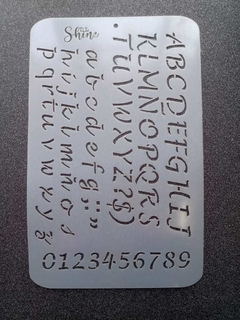 Shine
ABCDEFGHIJ
KLMNOPQRS
TUVWXYZ?$)
abcdefg;,"
hijklmños
pqrtuvwxyz
0123456789